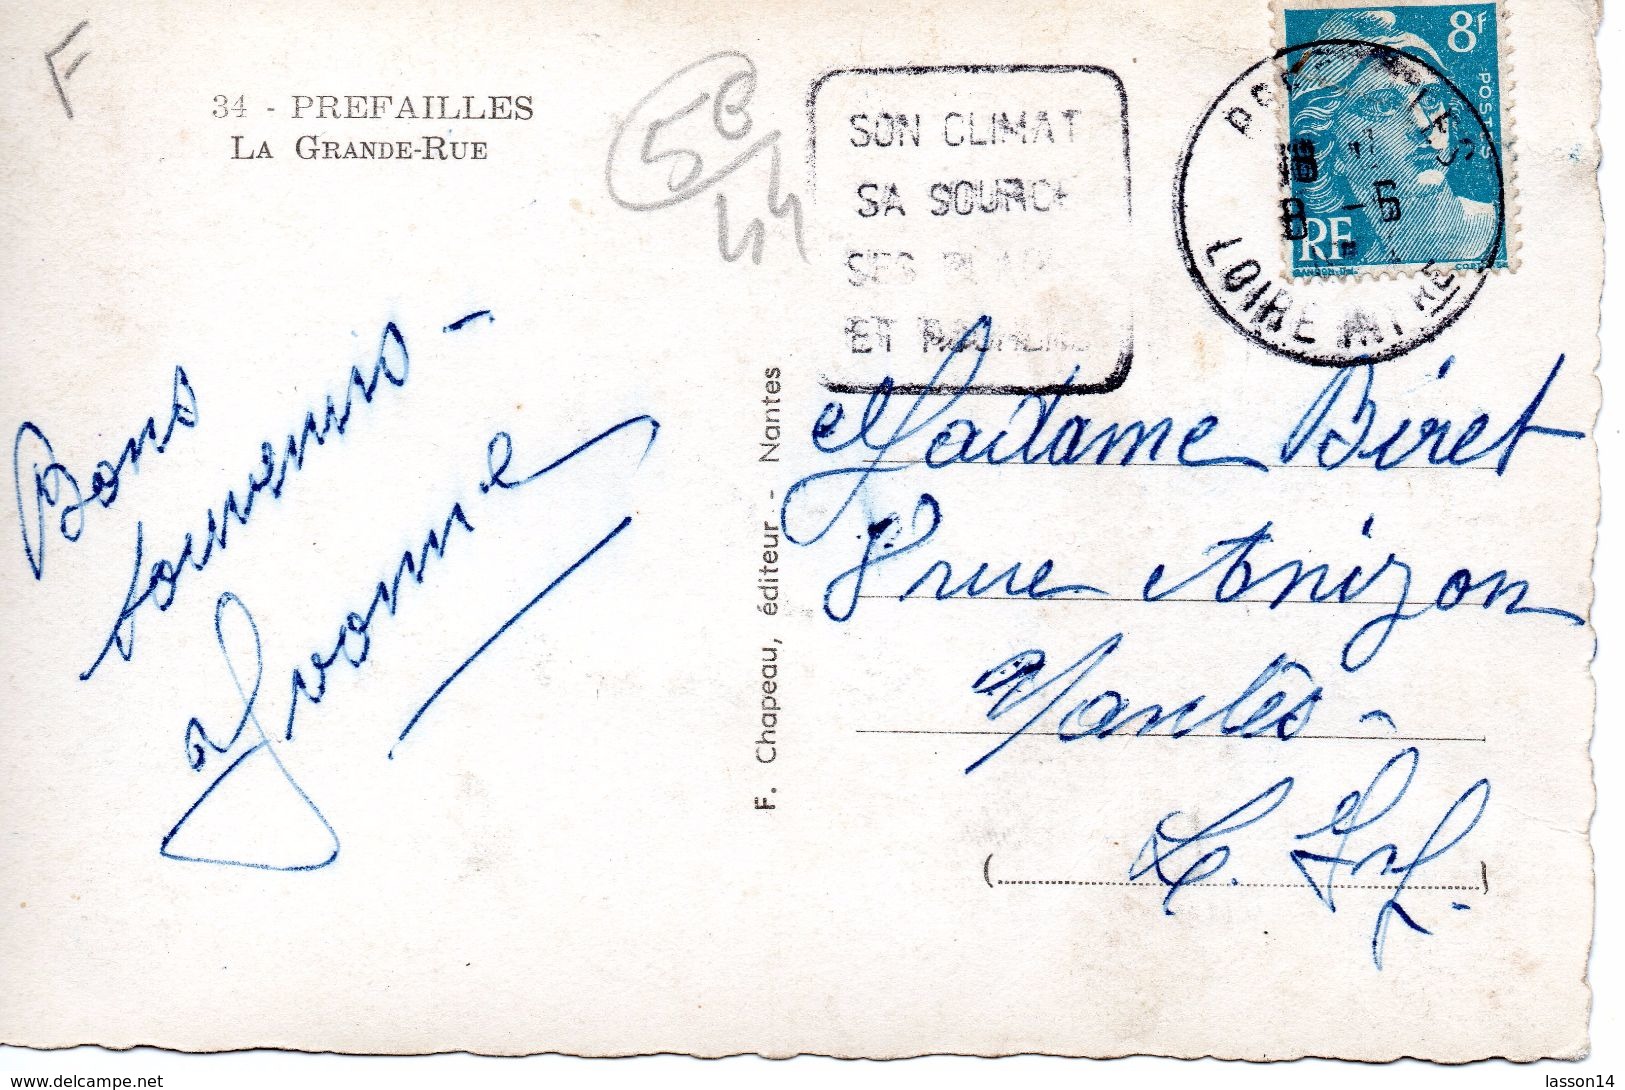 F
34 - PREFAILLES
LA GRANDE-RUE
5€
44
SON CLIMAT
SA SOURCE
SES
ET ROCHERS
8F
POSTES
RF
LOIRE INFRE
18
8 -5
Bons
souvenirs -
Yvonne
F. Chapeau, éditeur - Nantes
Madame Biret
8 rue Anizon
Nantes -
L. Inf.
www.delcampe.net
lasson14